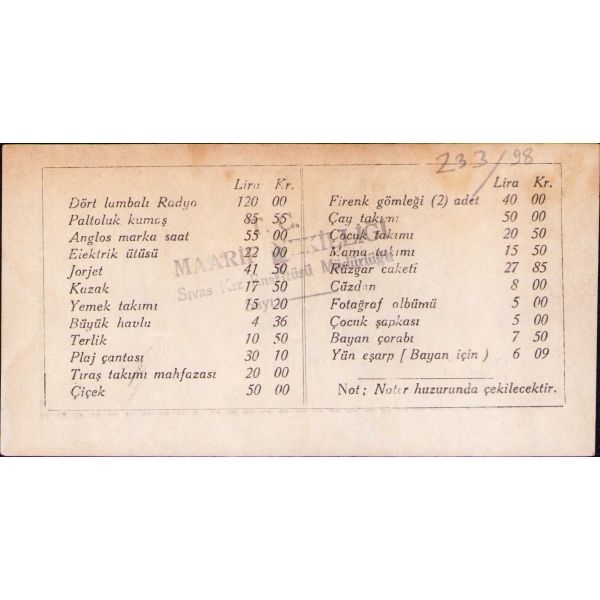 233/98
Lira Kr.
Dört lumbalı Radyo 120 00
Paltoluk kumaş 85 55
Anglos marka saat 55 00
Elektrik ütüsü 22 00
Jorjet 41 50
Kazak 17 50
Yemek takımı 15 20
Büyük havlu 4 36
Terlik 10 50
Plaj çantası 30 10
Tıraş takımı mahfazası 20 00
Çiçek 50 00
Lira Kr.
Firenk gömleği (2) adet 40 00
Çay takımı 50 00
Çocuk takımı 20 50
Mama takımı 15 50
Rüzgar caketi 27 85
Cüzdan 8 00
Fotağraf albümü 5 00
Çocuk şapkası 5 00
Bayan çorabı 7 50
Yün eşarp [ Bayan için ) 6 09
Not; Noter huzurunda çekilecektir.
T. C.
MAARİF VEKİLLİĞİ
Sıvas Kız Enstitüsü Müdürlüğü